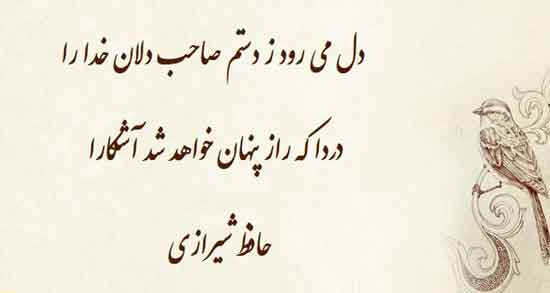 دل می رود ز دستم صاحب دلان خدا را
دردا که راز پنهان خواهد شد آشکارا
حافظ شیرازی